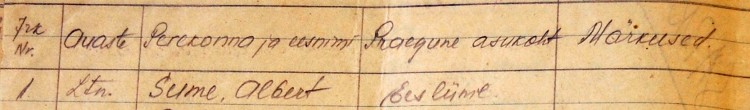 Jrk Nr. Auaste Perekonna ja eesnimi Praegune asukoht Märkused.
1. Ltn. Sume, Albert Eesliinil.